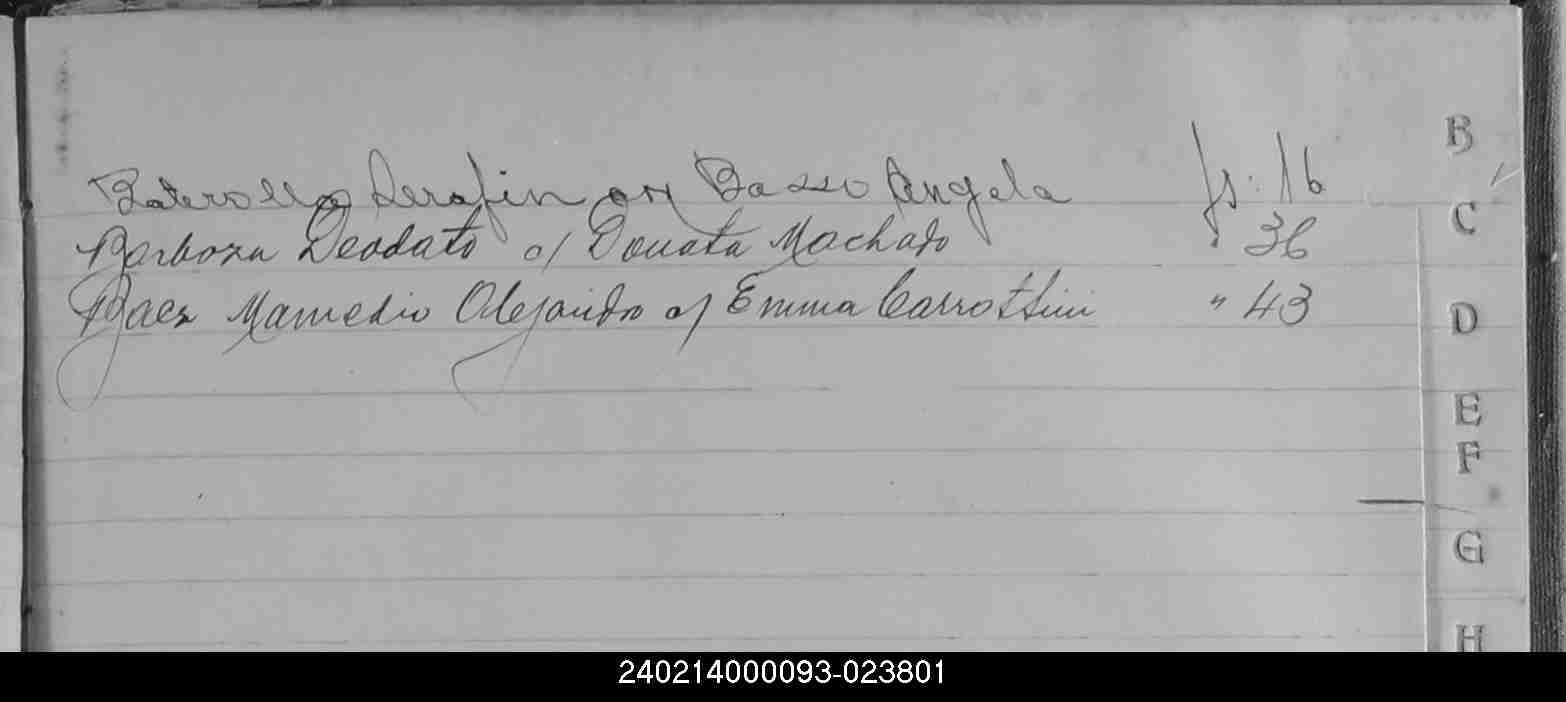 Baterollo Serafin con Basso Angela fs. 16
Barboza Deodato c/ Donata Machado " 36
Baez Mamedio Alejandro c/ Emma Carrottini " 43
B
C
D
E
F
G
H
240214000093-023801